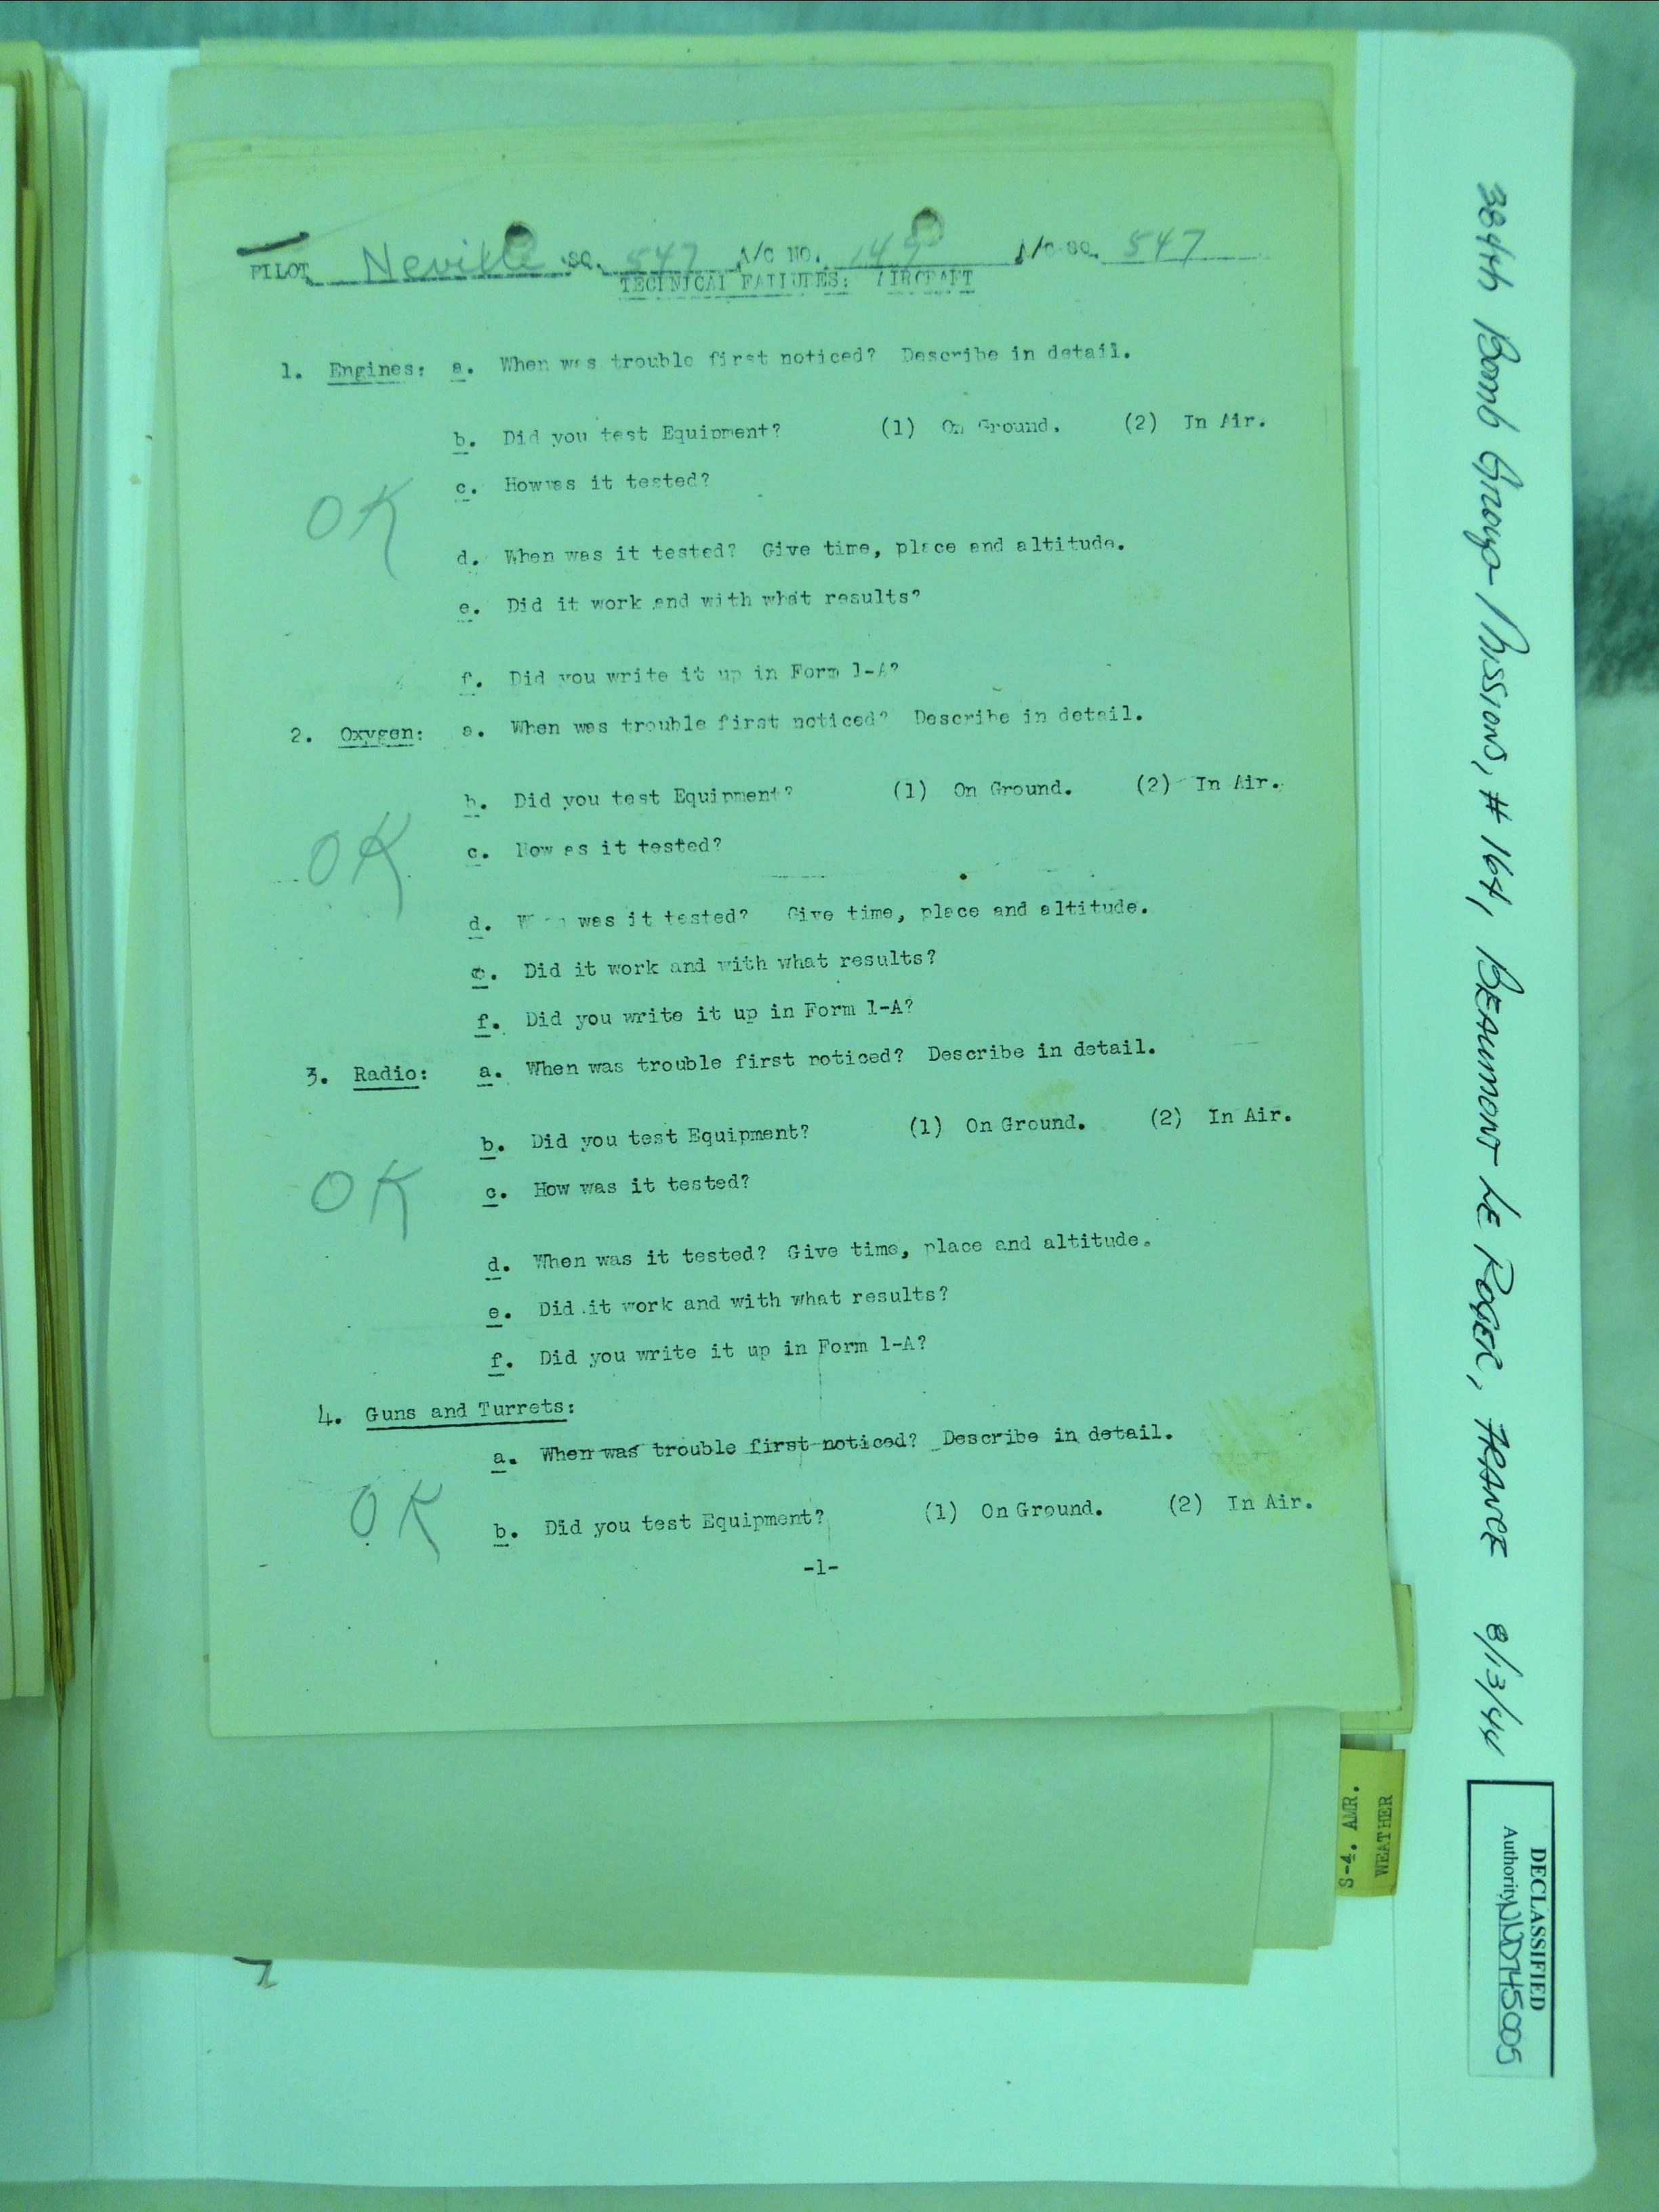 PILOT Neville SQ. 547 A/C NO. 149 A/C SQ. 547
TECHNICAL FAILURES: AIRCRAFT
1. Engines: a. When was trouble first noticed? Describe in detail.
b. Did you test Equipment? (1) On Ground. (2) In Air.
c. How was it tested?
OK
d. When was it tested? Give time, place and altitude.
e. Did it work and with what results?
f. Did you write it up in Form 1-A?
2. Oxygen: a. When was trouble first noticed? Describe in detail.
b. Did you test Equipment? (1) On Ground. (2) In Air.
c. How as it tested?
OK
d. When was it tested? Give time, place and altitude.
e. Did it work and with what results?
f. Did you write it up in Form 1-A?
3. Radio: a. When was trouble first noticed? Describe in detail.
b. Did you test Equipment? (1) On Ground. (2) In Air.
OK
c. How was it tested?
d. When was it tested? Give time, place and altitude.
e. Did it work and with what results?
f. Did you write it up in Form 1-A?
4. Guns and Turrets:
a. When was trouble first noticed? Describe in detail.
OK
b. Did you test Equipment? (1) On Ground. (2) In Air.
-1-
S-4. AMR.
WEATHER
384th Bomb Group Missions, # 164, BEAUMONT LE ROGER, FRANCE 8/13/44
DECLASSIFIED
Authority NND745005